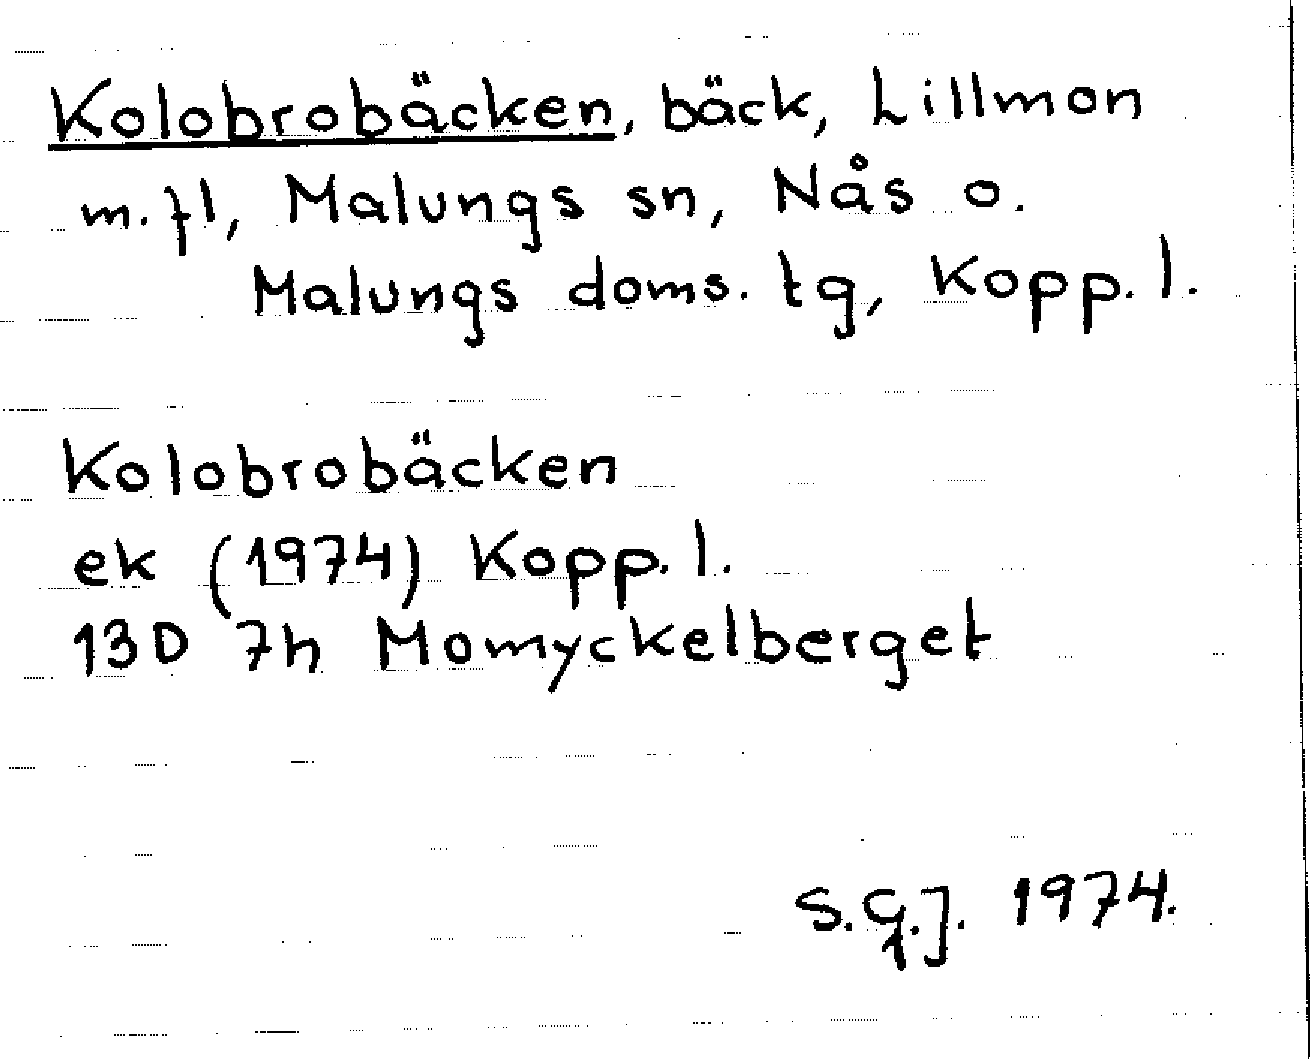 Kolobrobäcken, bäck, Lillmon
m. fl, Malungs sn, Nås o.
Malungs doms. tg, Kopp. l.
Kolobrobäcken
ek (1974) Kopp. l.
13D 7h Momyckelberget
S.G.J. 1974.